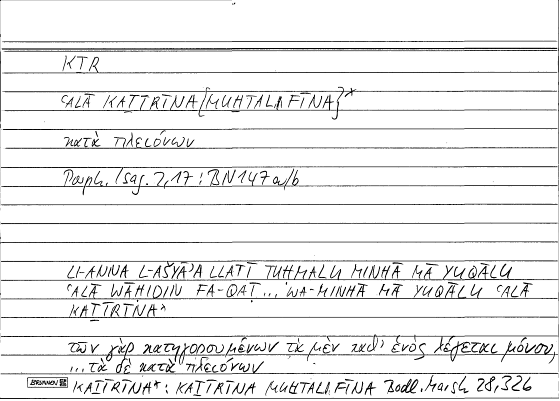 KṮR
ʿALĀ KAṮĪRĪNA {MUḪTALIFĪNA}*
κατὰ πλειόνων
Porph. Isag. 2,17 : BN 147 a/b
LI-ANNA L-AŠYĀʾA LLATĪ TUḤMALU MINHĀ MĀ YUQĀLU
ʿALĀ WĀḤIDIN FA-QAṬ ... WA-MINHĀ MĀ YUQĀLU ʿALĀ
KAṮĪRĪNA*
τῶν γὰρ κατηγορουμένων τὰ μὲν καθ' ἑνὸς λέγεται μόνου,
... τὰ δὲ κατὰ πλειόνων
BRUNNEN
KAṮĪRĪNA* : KAṮĪRĪNA MUḪTALIFĪNA Bodl. Marsh 28,326